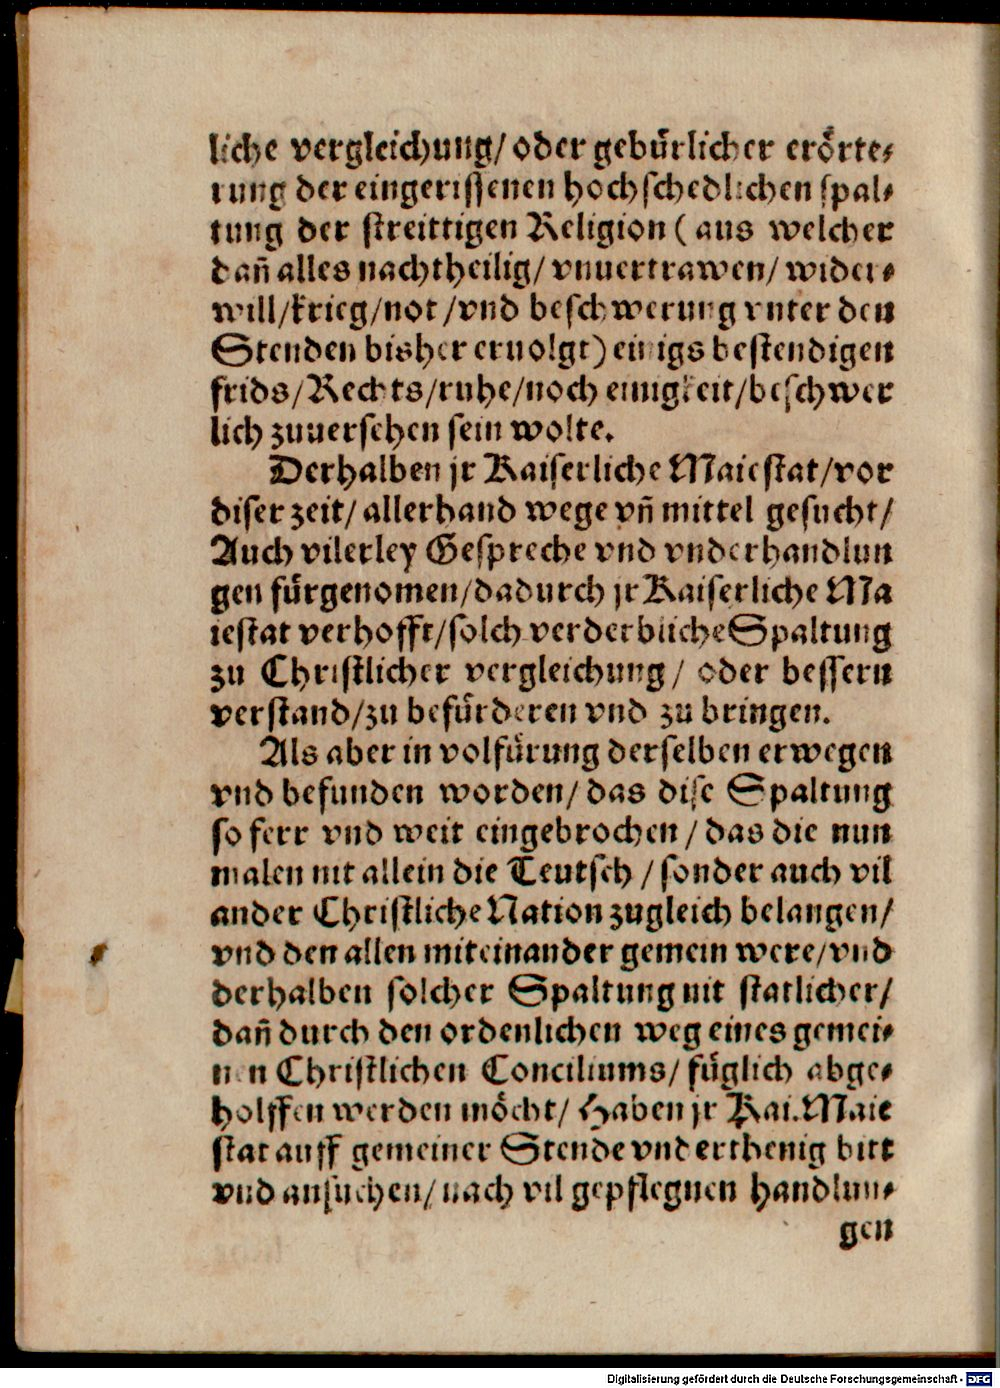 liche vergleichung/ oder gebürlicher erörte⸗
rung der eingerissenen hochschedlichen spal⸗
tung der streittigen Religion ( aus welcher
dañ alles nachtheilig/ vnuertrawen/ wider⸗
will/krieg/not /vnd beschwerung vnter den
Stenden bisher eruolgt) einigs bestendigen
frids/Rechts/ruhe/noch einigkeit/beschwer
lich zuuersehen sein wolte.
Derhalben jr Kaiserliche Maiestat/vor
diser zeit/ allerhand wege vñ mittel gesucht/
Auch vilerley Gespreche vnd vnderhandlun
gen fürgenomen/dadurch jr Kaiserliche Ma
iestat verhofft/solch verderbliche Spaltung
zu Christlicher vergleichung/ oder bessern
verstand/zu befürderen vnd zu bringen.
Als aber in volfürung derselben erwegen
vnd befunden worden/ das dise Spaltung
so ferr vnd weit eingebrochen/ das die nun
malen nit allein die Teutsch / sonder auch vil
ander Christliche Nation zugleich belangen/
vnd den allen miteinander gemein were/vnd
derhalben solcher Spaltung nit statlicher/
dañ durch den ordenlichen weg eines gemei⸗
nen Christlichen Conciliums/ füglich abge⸗
holffen werden möcht/ Haben jr Kai. Maie
stat auff gemeiner Stende vnderthenig bitt
vnd ansuchen/ nach vil gepflegnen handlun⸗
gen
Digitalisierung gefördert durch die Deutsche Forschungsgemeinschaft - DFG